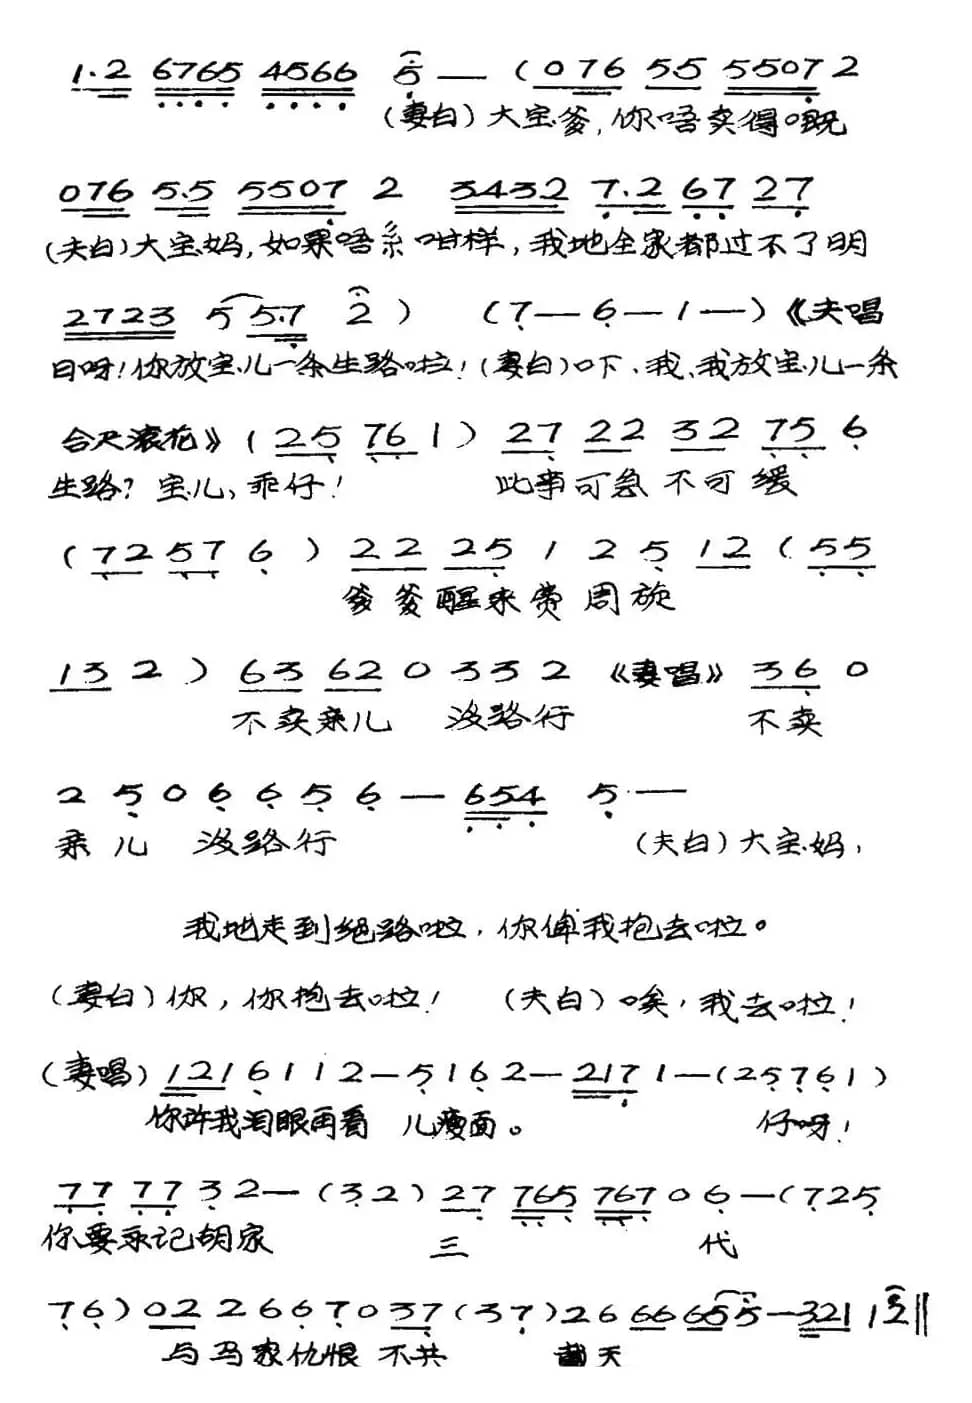 1.2 6765 4566 5 — ( 076 55 5507 2
(妻白) 大宝爹, 你唔卖得嘅
076 5.5 5507 2 3432 7.2 67 27
(夫白) 大宝妈, 如果唔系咁样, 我地全家都过不了明
2723 5 5.7 2 ) (7 — 6 — 1 —) 《夫唱
日呀! 你放宝儿一条生路啦! (妻白) 吓、我、我放宝儿一条
合尺滚花》 (25 76 1) 27 22 32 75 6
生路? 宝儿, 乖仔! 此事可急不可缓
( 72 57 6 ) 22 25 1 2 5 12 ( 55
爹爹醒来费周旋
13 2 ) 63 62 0 3 3 2 《妻唱》 36 0
不卖亲儿 没路行 不卖
2 5 0 6 6 5 6 — 654 5 —
亲儿 没路行 (夫白) 大宝妈,
我地走到绝路啦, 你俾我抱去啦。
(妻白) 你, 你抱去啦! (夫白) 唉, 我去啦!
(妻唱) 121 6 1 1 2 — 5 1 6 2 — 217 1 — (2 5 7 6 1)
你许我泪眼再看 儿瘦面。 仔呀!
77 77 3 2 — (3 2) 27 765 767 0 6 — (7 2 5
你要永记胡家 三 代
7 6) 0 22 2 6 6 7 0 37 (3 7) 2 6 66 65 5 — 321 1 2 ‖
与马家仇恨 不共 戴天